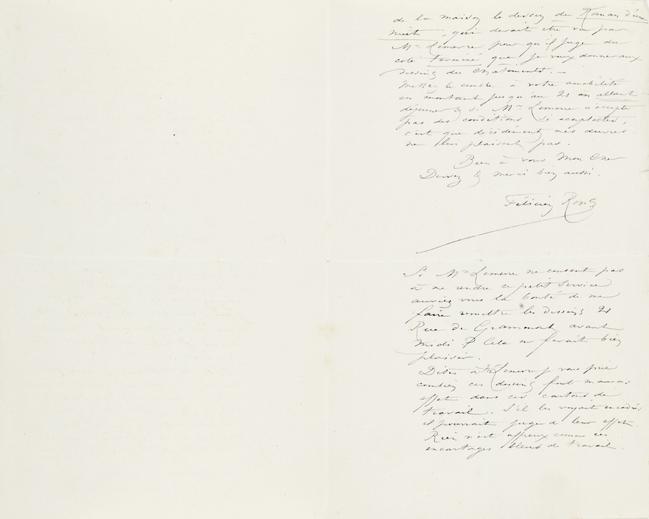 de la maison le dessin de Roman d'une
nuit, qui devait être vu par
Mr Lemerre pour qu'il juge du
coté terminé que je veux donner aux
dessins des Chatiments. —
Mettez le comble à votre amabilité
en montant jusqu'au 21 en allant
déjeuner & si Mr Lemerre n'accepte
pas des conditions si acceptables,
c'est que décidement mes œuvres
ne lui plaisent pas.
Bien à vous Mon Cher
& merci bien aussi.
Félicien Rops
Si Mr Lemerre ne consent pas
à me rendre ce petit service
auriez vous la bonté de me
faire remettre les dessins 21
Rue de Grammont avant
Midi? Cela me ferait bien
plaisir.
Dites à Mr Lemerre je vous prie
combien ces dessins font mauvais
effet dans ces cartons de
travail. S'il les voyait encadrés
il pourrait juger de leur effet.
Rien n'est affreux comme ces
encartages bleus de travail.